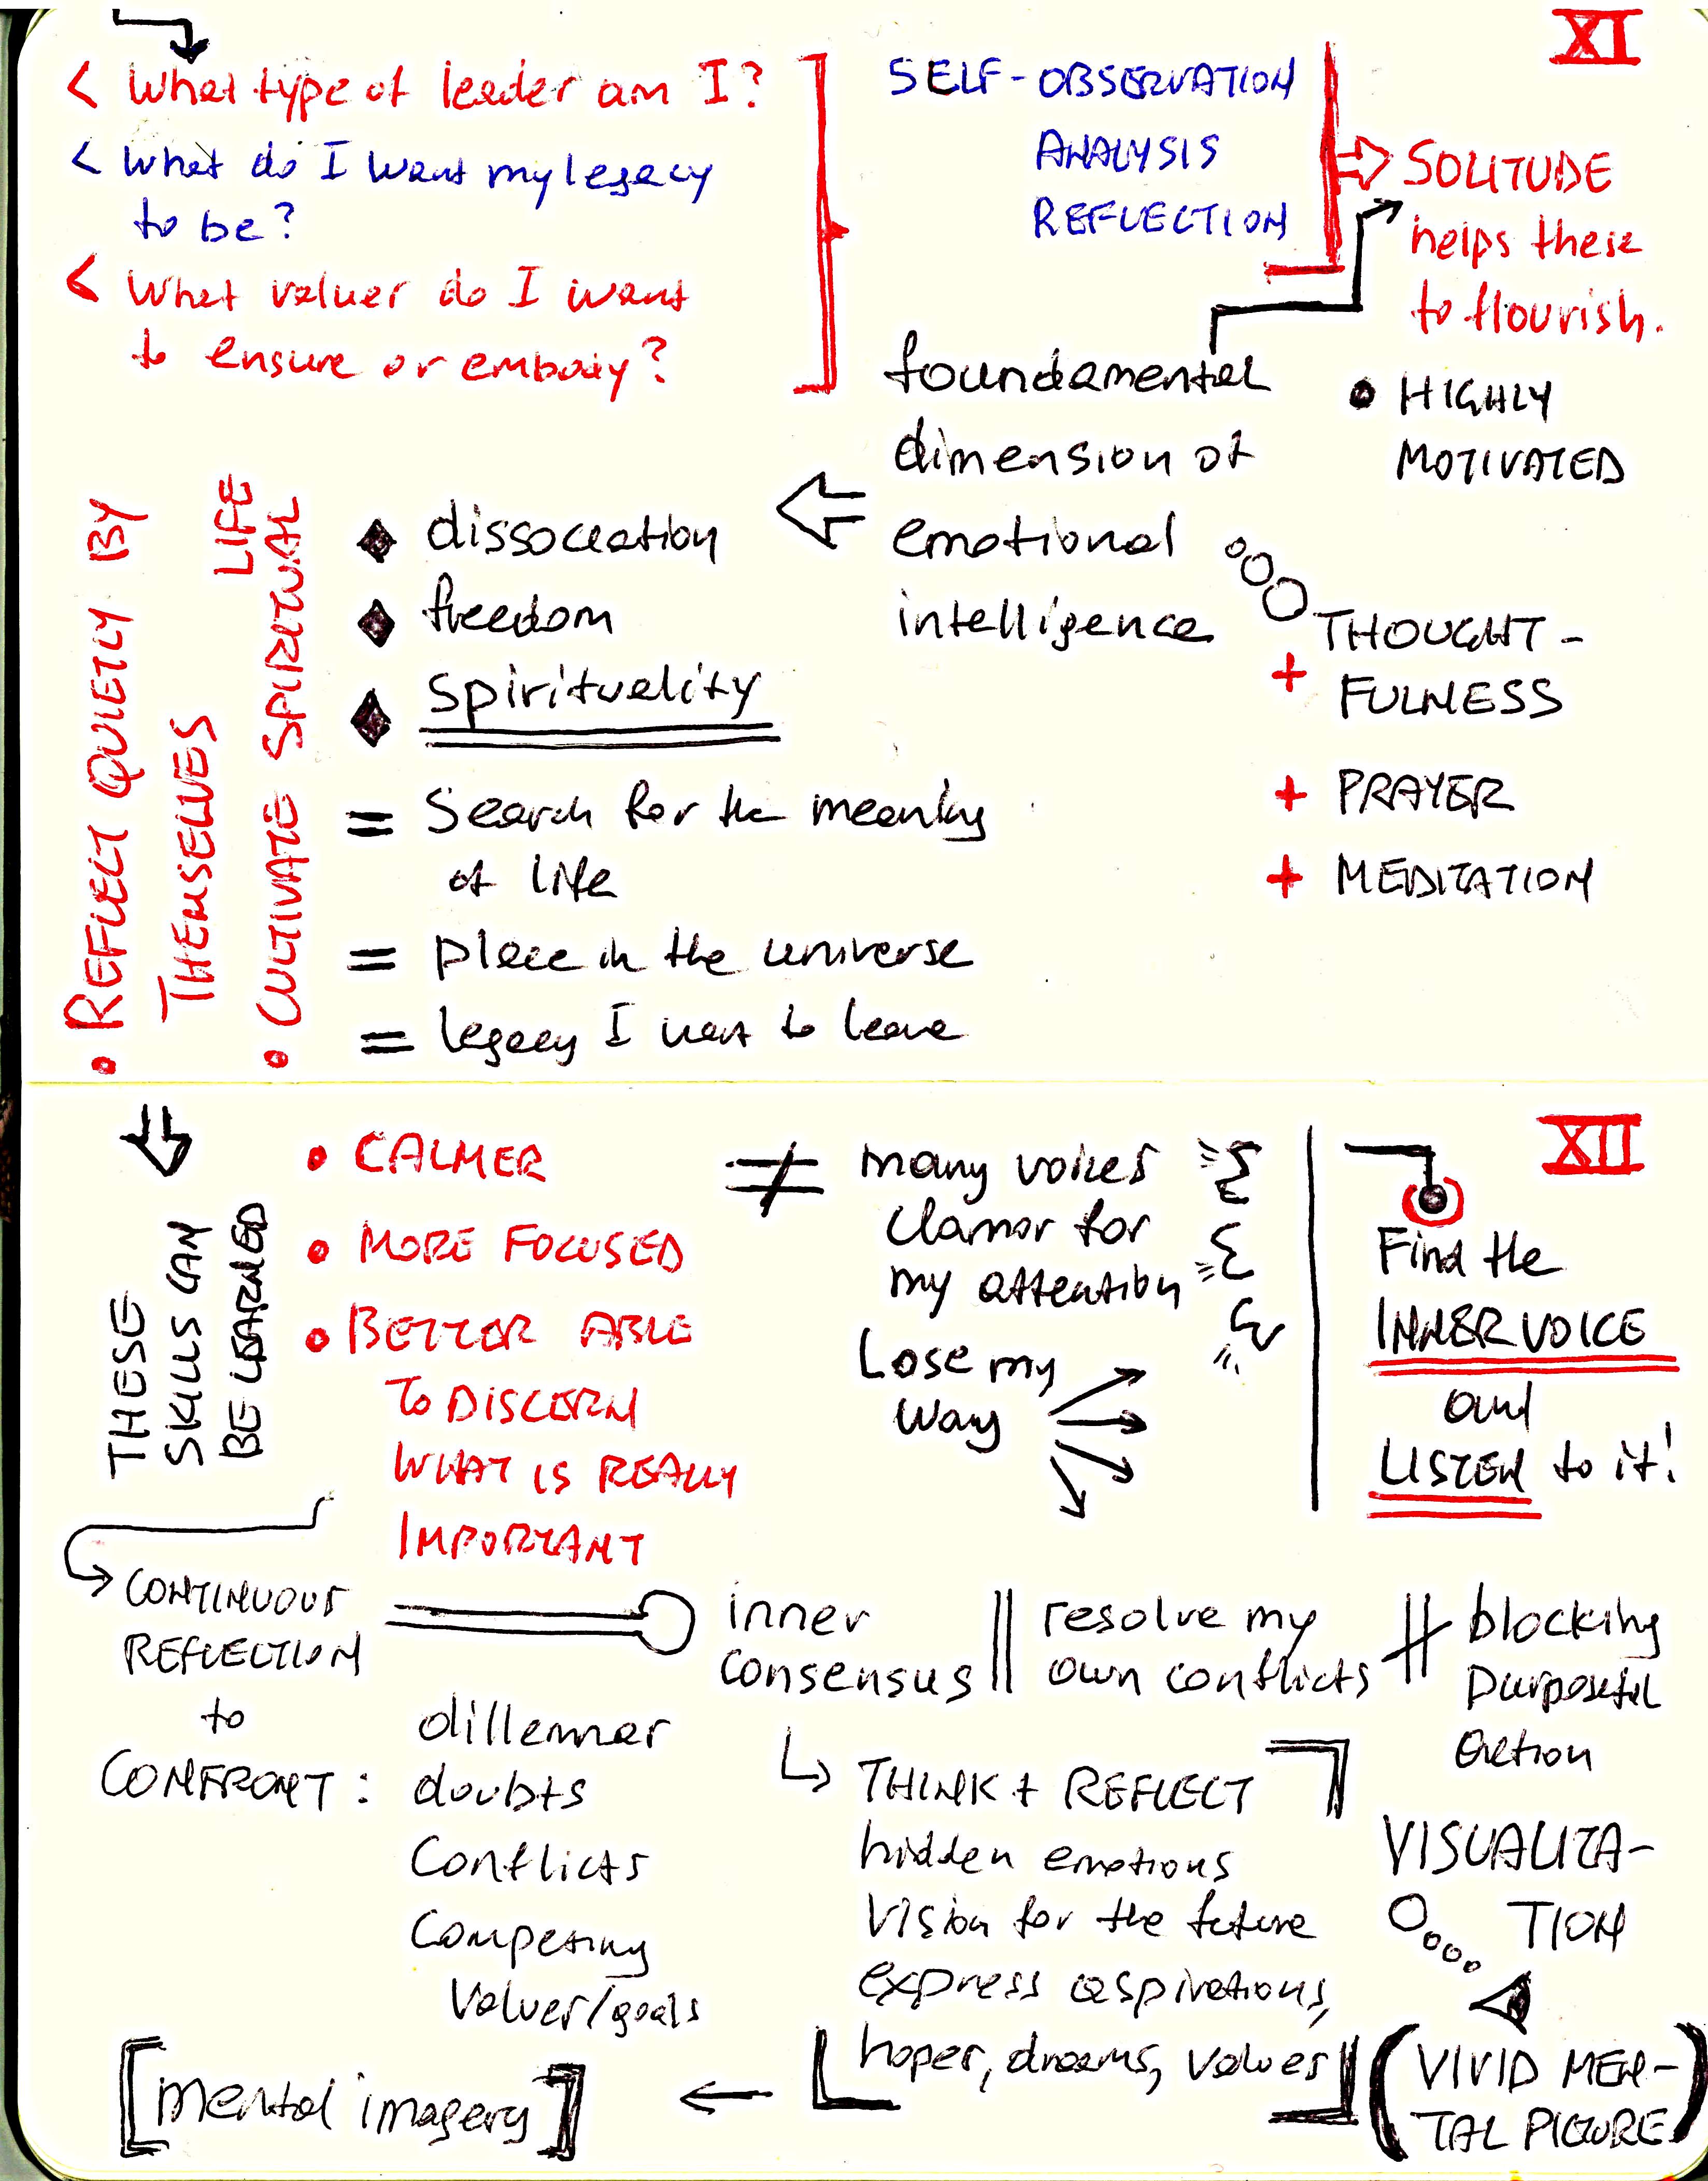 XI
< What type of leader am I?
< What do I want my legacy
to be?
< What values do I want
to ensure or embody?
SELF-OBSERVATION
ANALYSIS
REFLECTION
SOLITUDE
helps these
to flourish.
foundamental
dimension of
emotional
intelligence
• HIGHLY
MOTIVATED
THOUGHT-
+ FULNESS
+ PRAYER
+ MEDITATION
◆ dissociation
◆ freedom
◆ spirituality
= Search for the meaning
of life
= place in the universe
= legacy I want to leave
• REFLECT QUIETLY BY
THEMSELVES
• CULTIVATE SPIRITUAL
LIFE
XII
THESE
SKILLS CAN
BE LEARNED
• CALMER
• MORE FOCUSED
• BETTER ABLE
TO DISCERN
WHAT IS REALLY
IMPORTANT
≠ many voices
clamor for
my attention
Lose my
way
Find the
INNER VOICE
and
LISTEN to it!
CONTINUOUS
REFLECTION
to
CONFRONT:
dillemmas
doubts
Conflicts
Competing
Values/goals
inner
consensus
resolve my
own conflicts
blocking
purposeful
action
THINK + REFLECT
hidden emotions
Vision for the future
express aspirations,
hopes, dreams, values
VISUALIZA-
TION
(VIVID MEN-
TAL PICTURE)
[mental imagery]